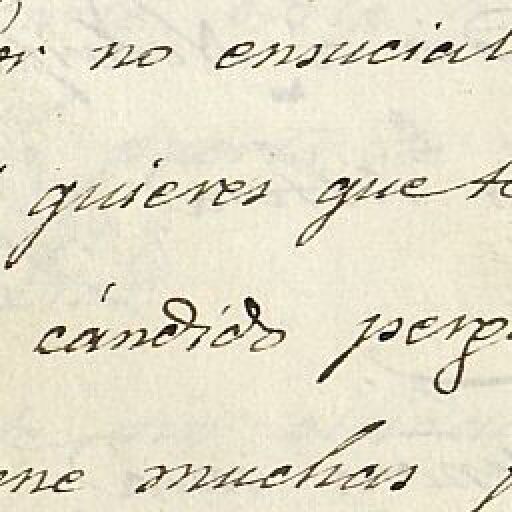 no ensuciar
quieres que te
cándido perga
ne muchas